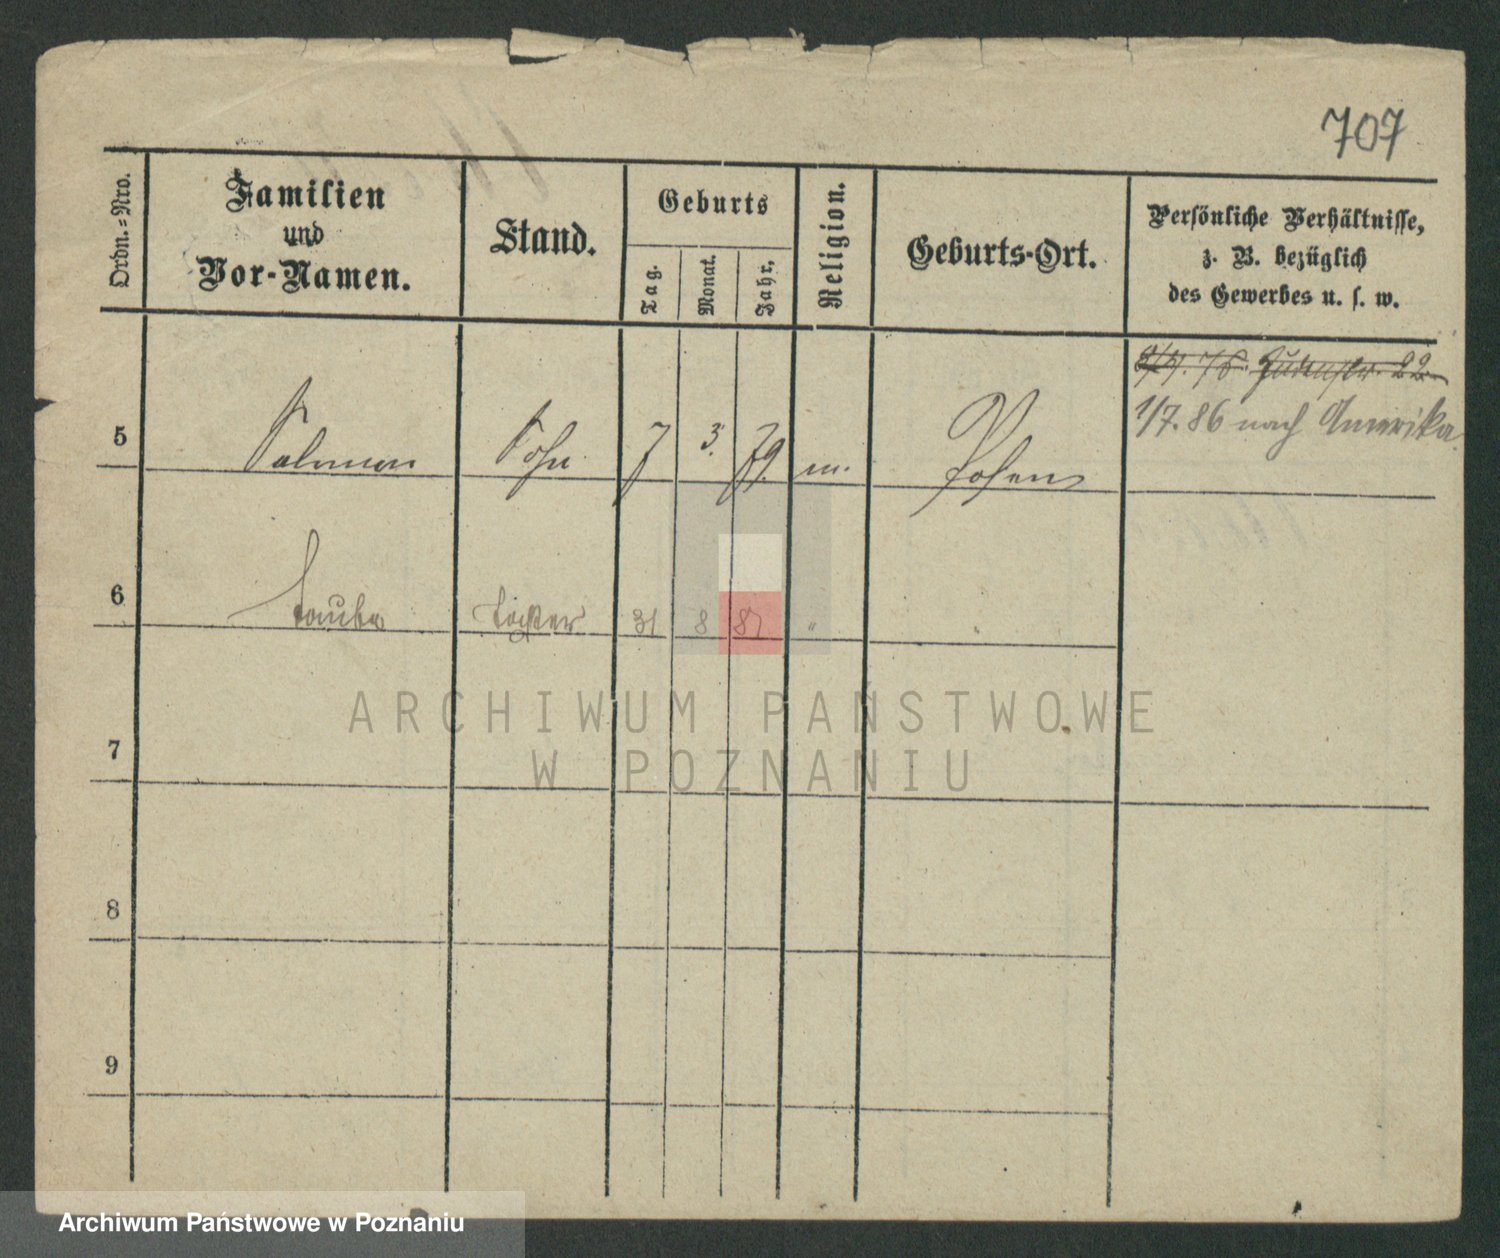 707
Ordn.-Nro.
Familien
und
Vor-Namen.
Stand.
Geburts
Tag.
Monat.
Jahr,
Religion.
Geburts-Ort.
Persönliche Verhältnisse,
z. B. bezüglich
des Gewerbes u. s. w.
Judenstr. 22
1/7. 86 nach Amerika
5 Salomon Sohn 7 3. 79. m. Posen
6 Taube Tochter 31 8 "
7
8
9
ARCHIWUM PAŃSTWOWE
W POZNANIU
Archiwum Państwowe w Poznaniu